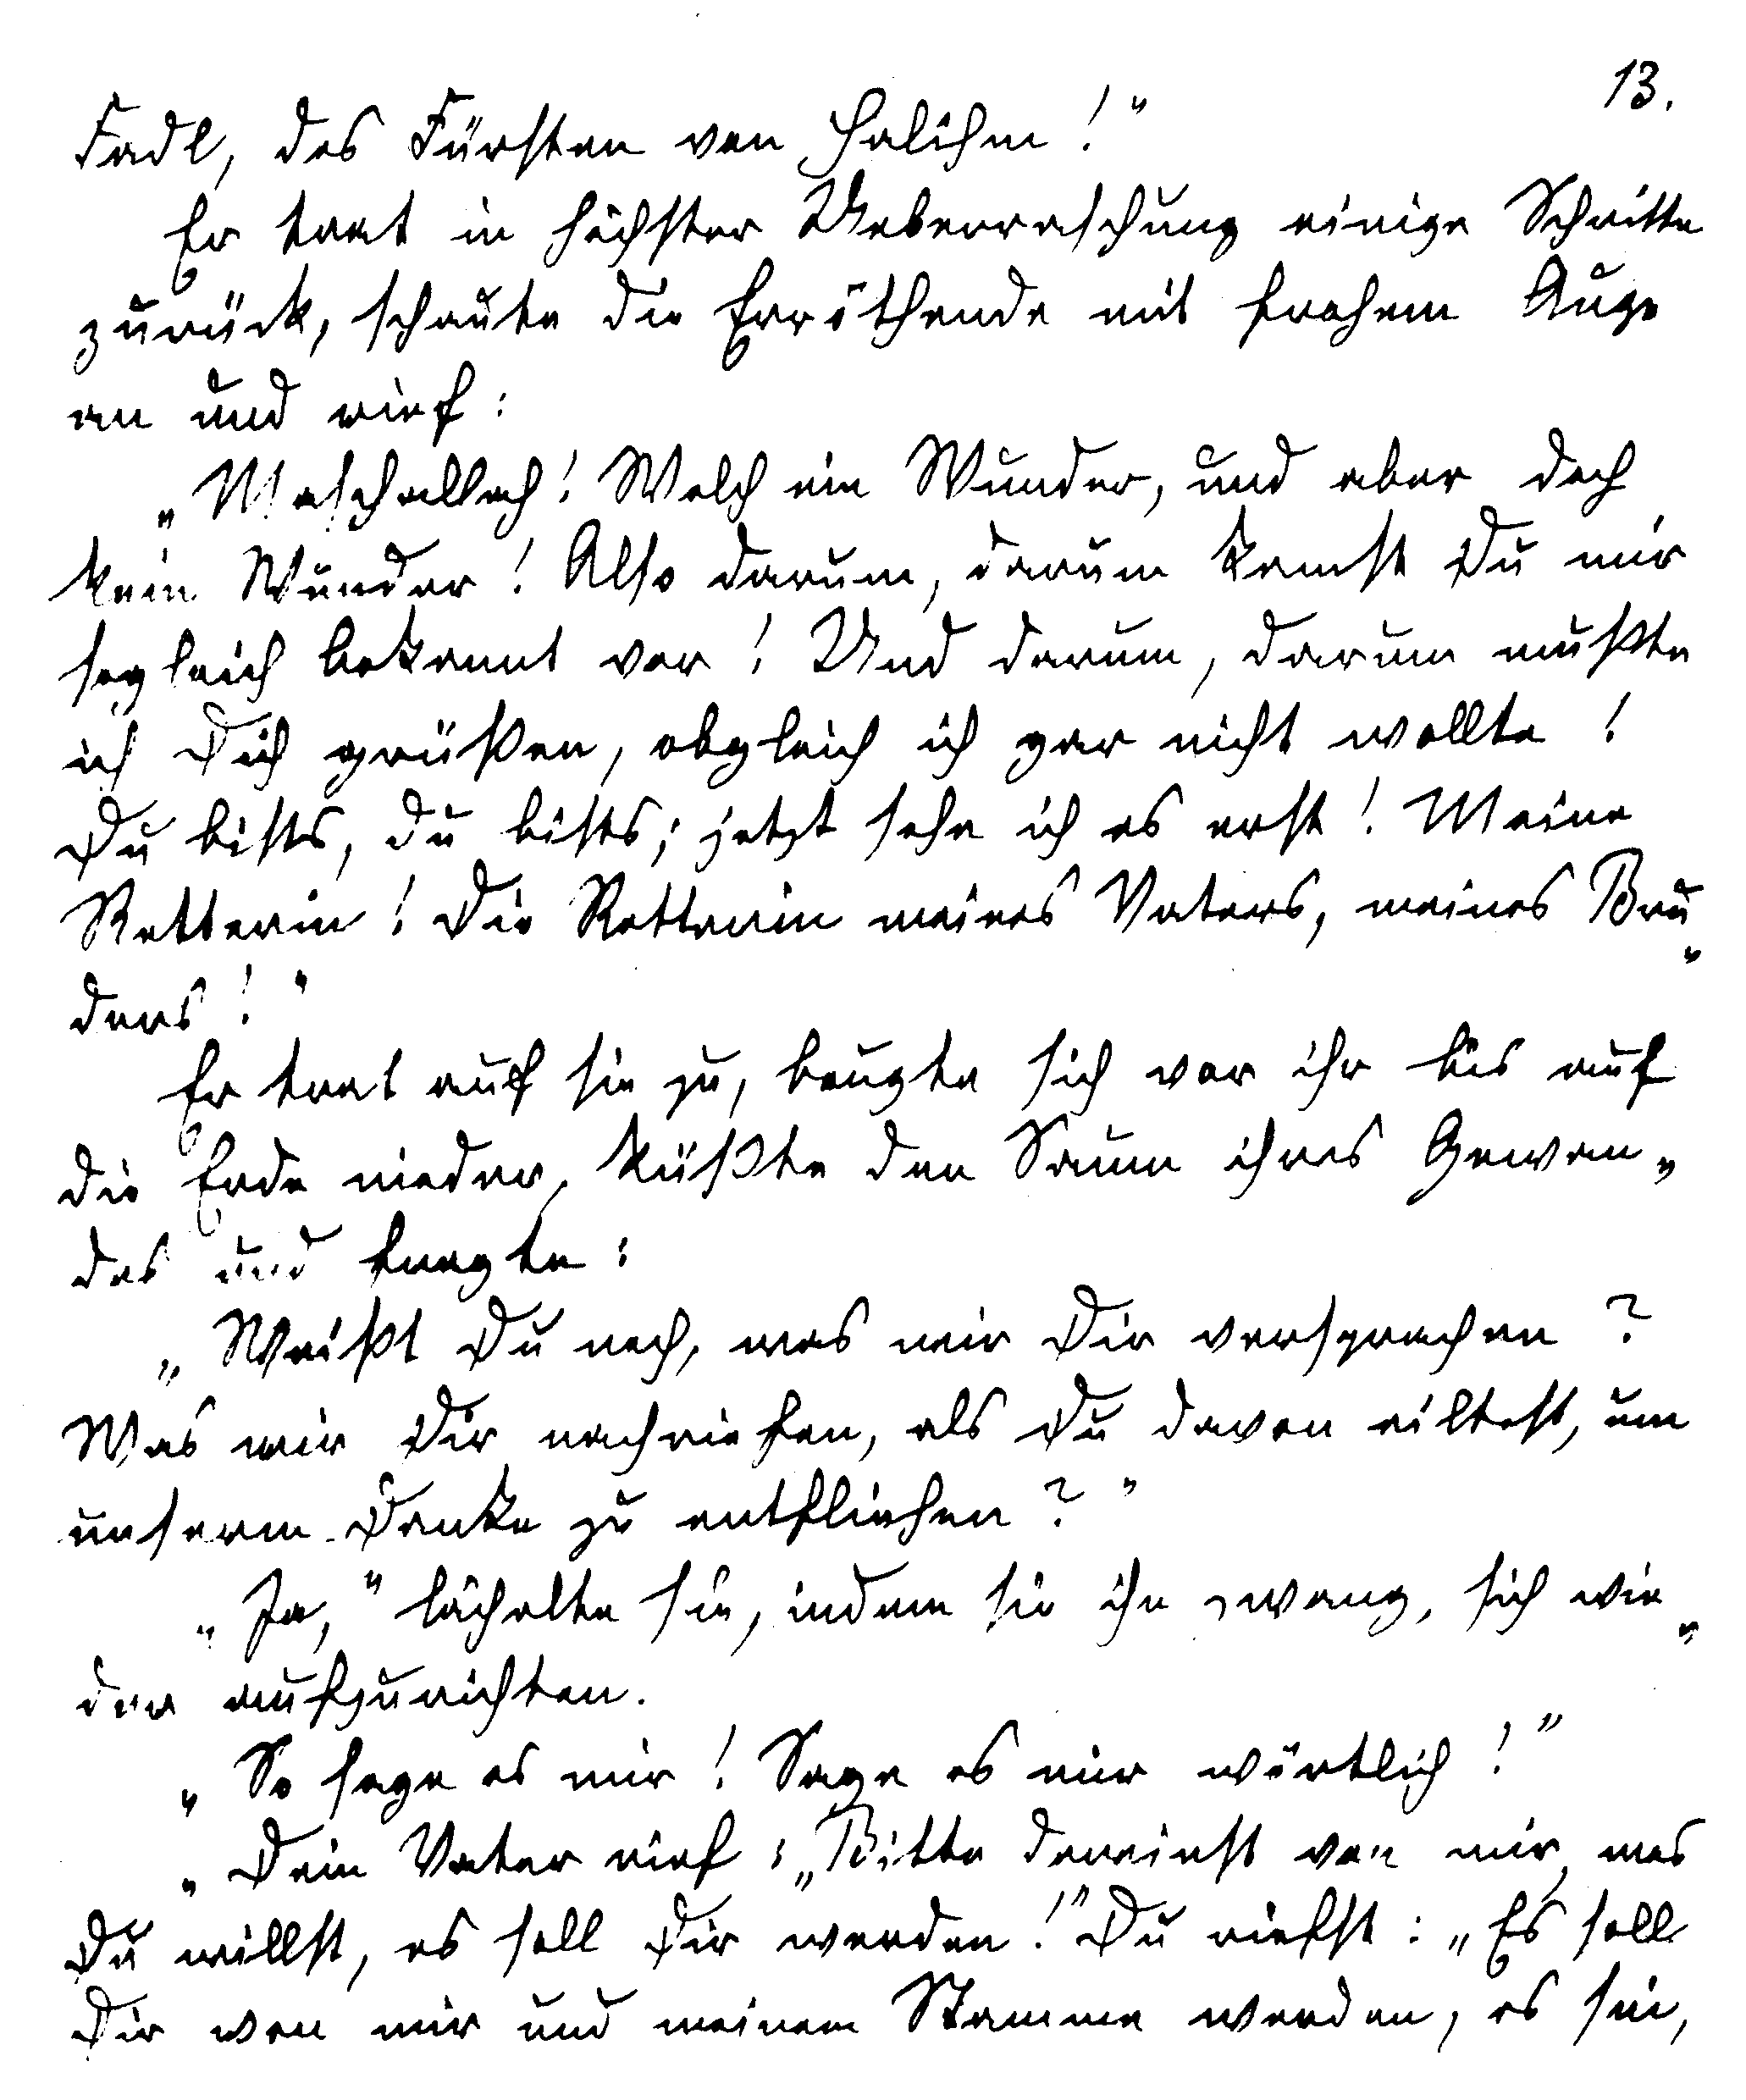 13.
Fadl, des Fürsten von Halihm!"
Er trat in höchster Ueberraschung einige Schritte
zurück, schaute die Erröthende mit frohem Auge
an und rief:
„Maschallah! Welch ein Wunder, und aber doch
kein Wunder! Also darum, darum kamst Du mir
sogleich bekannt vor! Und darum, darum mußte
ich Dich grüßen, obgleich ich gar nicht wollte!
Du bists, du bists; jetzt sehe ich es erst! Meine
Retterin! Die Retterin meines Vaters, meines Bru„
ders!"
Er trat auf sie zu, beugte sich vor ihr bis auf
die Erde nieder, küßte den Saum ihres Gewan„
des und fragte:
„Weißt Du noch, was wir Dir versprachen?
Was wir Dir nachriefen, als Du davon eiltest, um
unserm Danke zu entfliehen?"
„Ja," lächelte sie, indem sie ihn zwang, sich wie„
der aufzurichten.
„So sage es mir! Sage es mir wörtlich!"
„Dein Vater rief: „Bitte dereinst von mir, was
Du willst, es soll Dir werden!" Du riefst: „Es soll
Dir von mir und meinem Stamme werden, es sei,